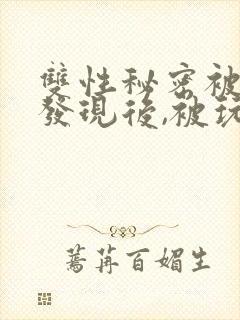 雙性秘密被
發現後,被玩
蓦苒百媚生